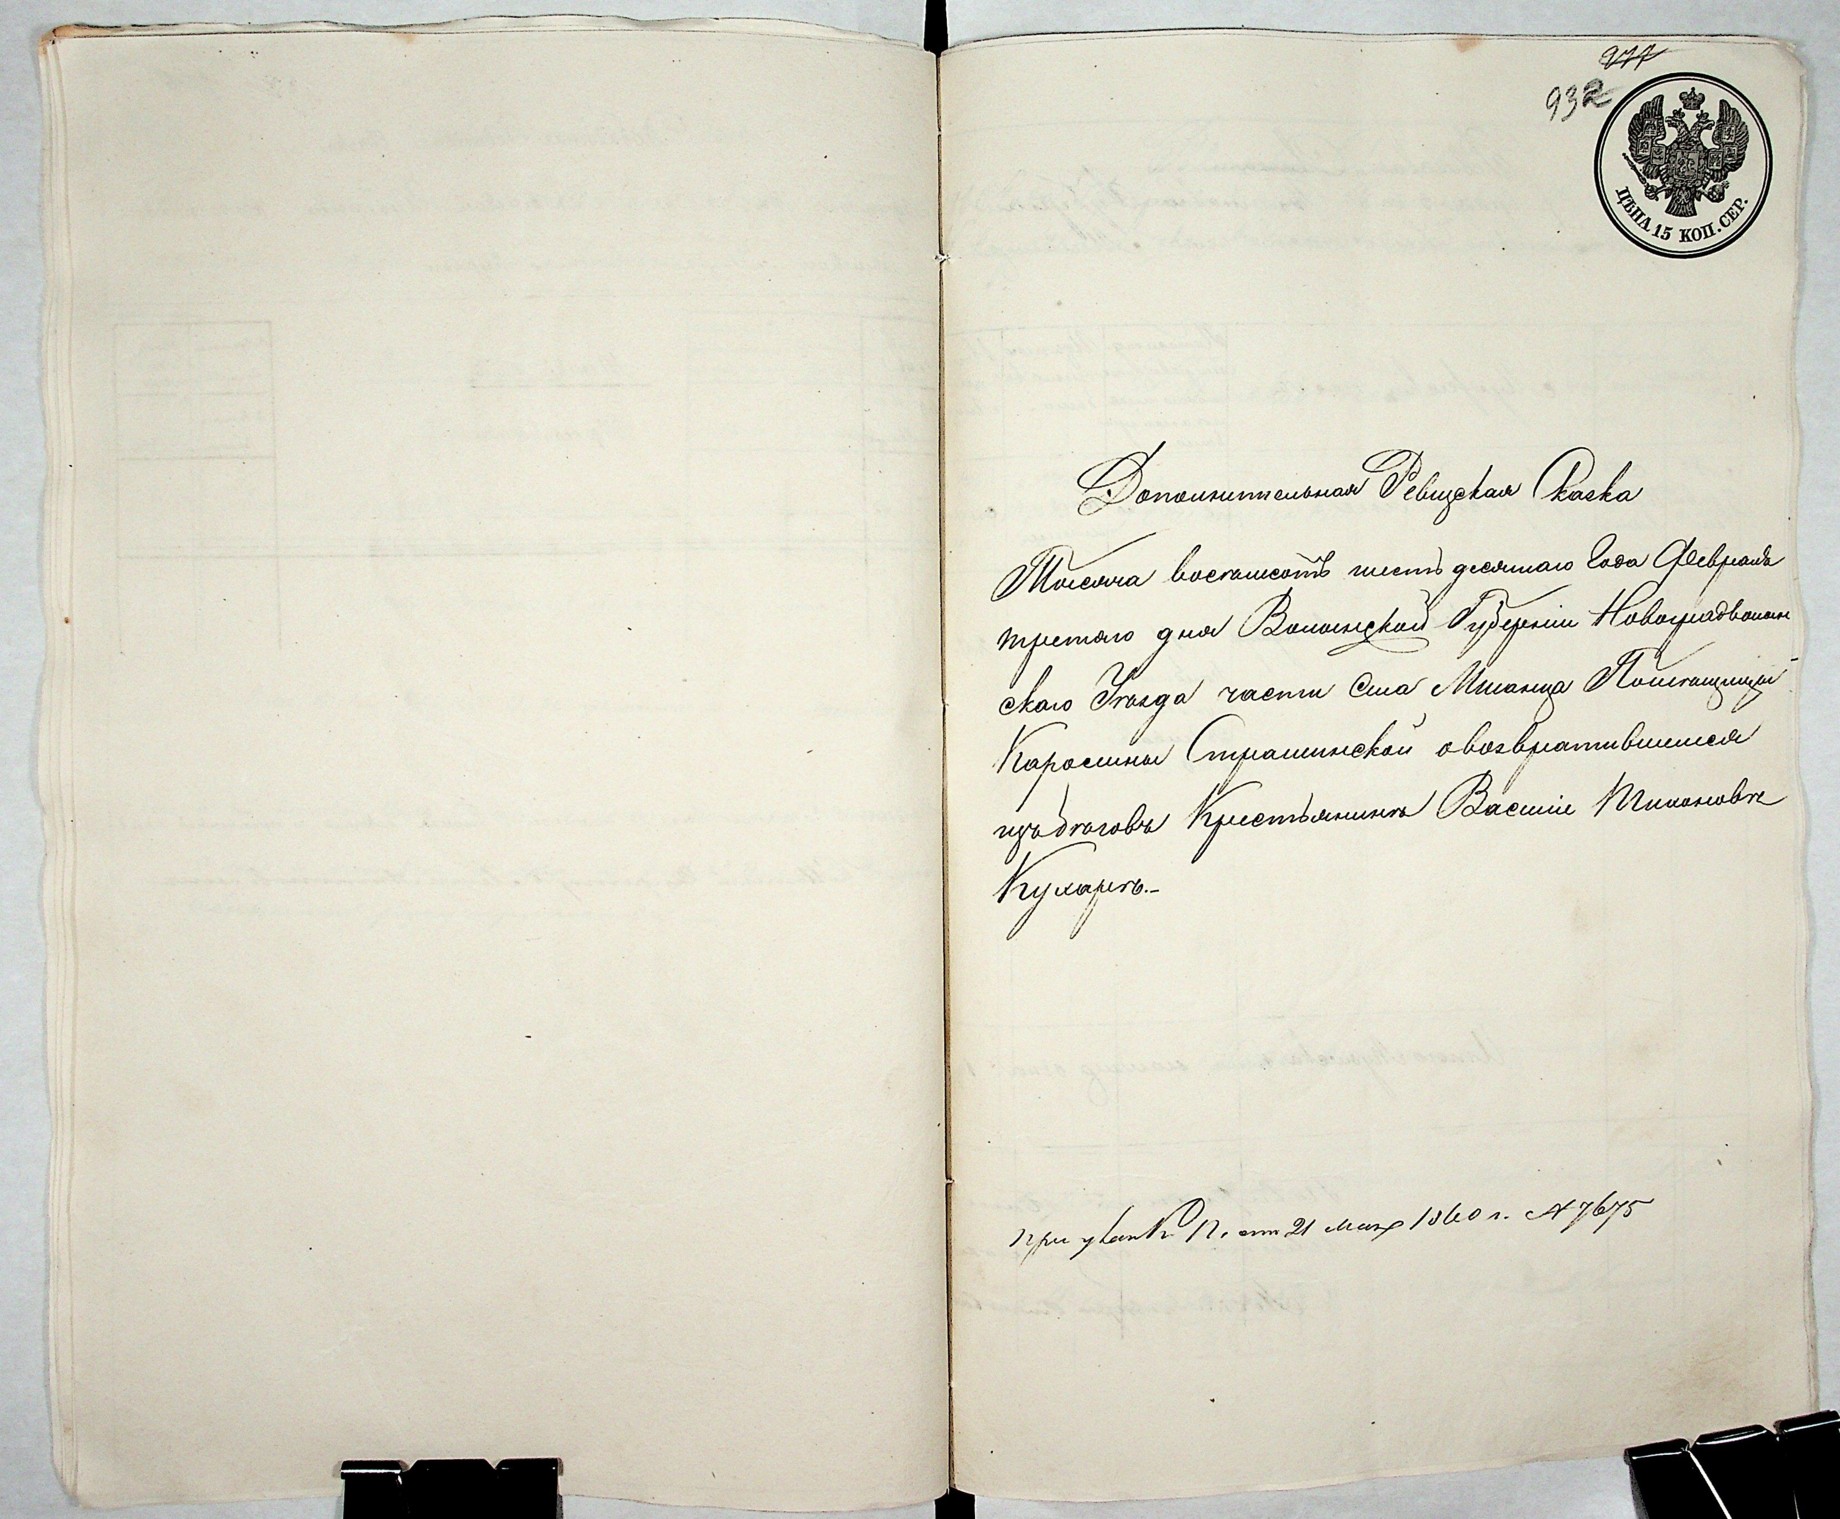 977
932
ЦѢНА 15 КОП. СЕР.
Дополнительная Ревизская Сказка
Тысяча восемьсотъ шестьдесятаго Года Февраля
третяго дня Волынской Губерніи Новоградволын
скаго Уѣзда части Села Мшанца Помѣщицы
Каролины Страшинской о возвратившемся
изъ бѣговъ Крестьянинѣ Василіе Шимоновѣ
Кухарѣ.-
при указѣ К. П. от 21 мая 1860 г. № 7675